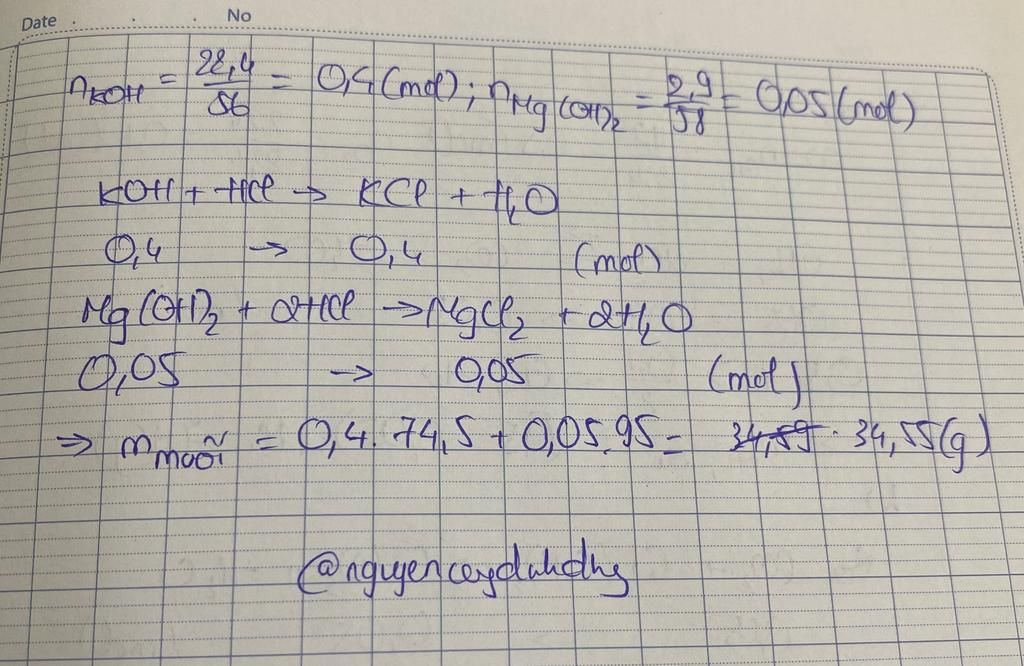 Date . . . No
nKOH = 22,4/56 = 0,4 (mol) ; nMg(OH)2 = 2,9/58 = 0,05 (mol)
KOH + HCl → KCl + H2O
0,4 → 0,4 (mol)
Mg(OH)2 + 2HCl → MgCl2 + 2H2O
0,05 → 0,05 (mol)
⇒ m muối = 0,4. 74,5 + 0,05. 95 = 34,55 (g)